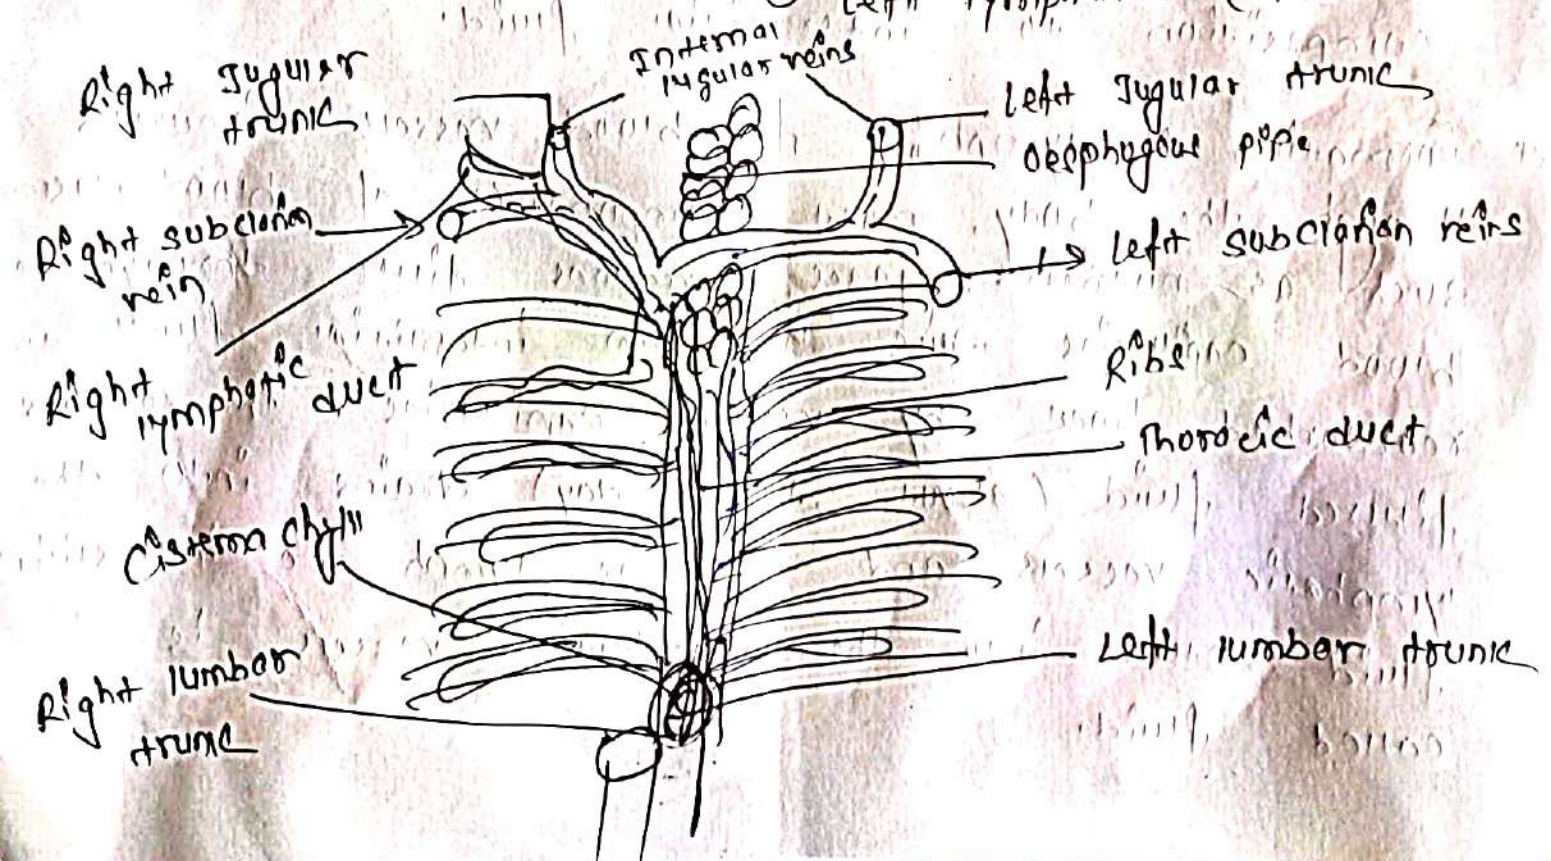 Left
Internal
jugular veins
Right Jugular
trunk
Left Jugular trunk
oesophagous pipe
Right subclavian
vein
Left subclavian veins
Right
lymphatic duct
Ribs
Thoracic duct
Cisterna chylli
Left lumbar trunk
Right lumbar
trunk